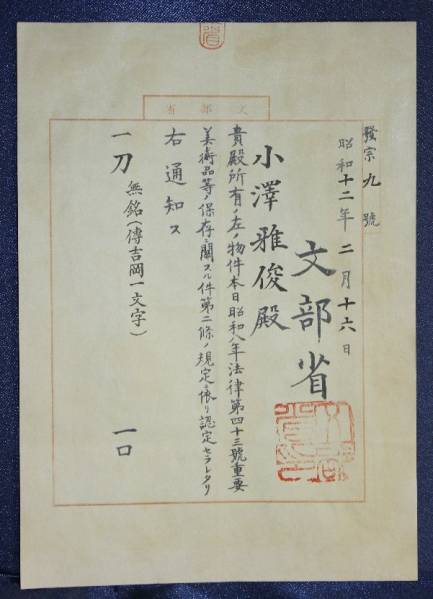 文部省
發宗九號
昭和十二年二月十六日
文部省
小澤雅俊殿
貴殿所有ノ左ノ物件本日昭和八年法律第四十三號重要
美術品等ノ保存ニ關スル件第二條ノ規定ニ依リ認定セラレタリ
右通知ス
一刀 無銘(傳吉岡一文字) 一口